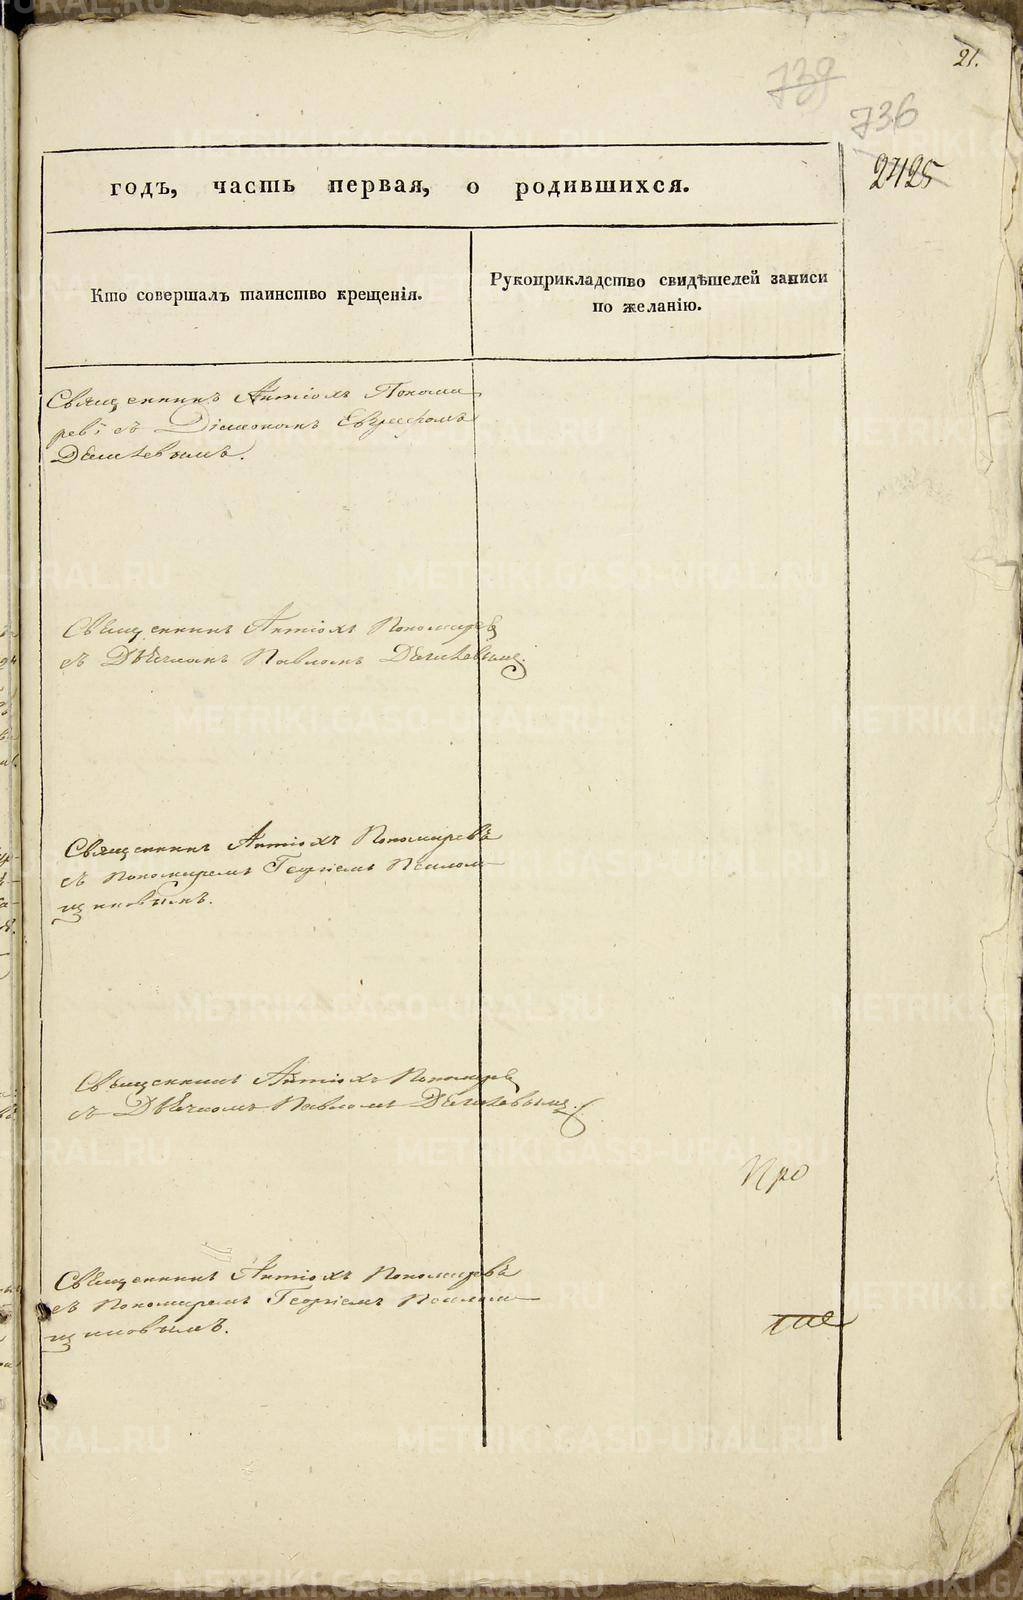 21.
739
736
2425
годъ, часть первая, о родившихся.
Кто совершалъ таинство крещенія.
Рукоприкладство свидѣтелей записи
по желанію.
Священникъ Антіохъ Понома
ревъ съ Діакономъ
Священникъ Антіохъ Пономаревъ
съ Дьячкомъ Павломъ
Священникъ Антіохъ Пономаревъ
съ Пономаремъ Георгіемъ
щиковымъ.
Священникъ Антіохъ Пономаревъ
съ Дьячкомъ Павломъ
Про
Священникъ Антіохъ Пономаревъ
съ Пономаремъ Георгіемъ
щиковымъ.
METRIKI.GASO-URAL.RU